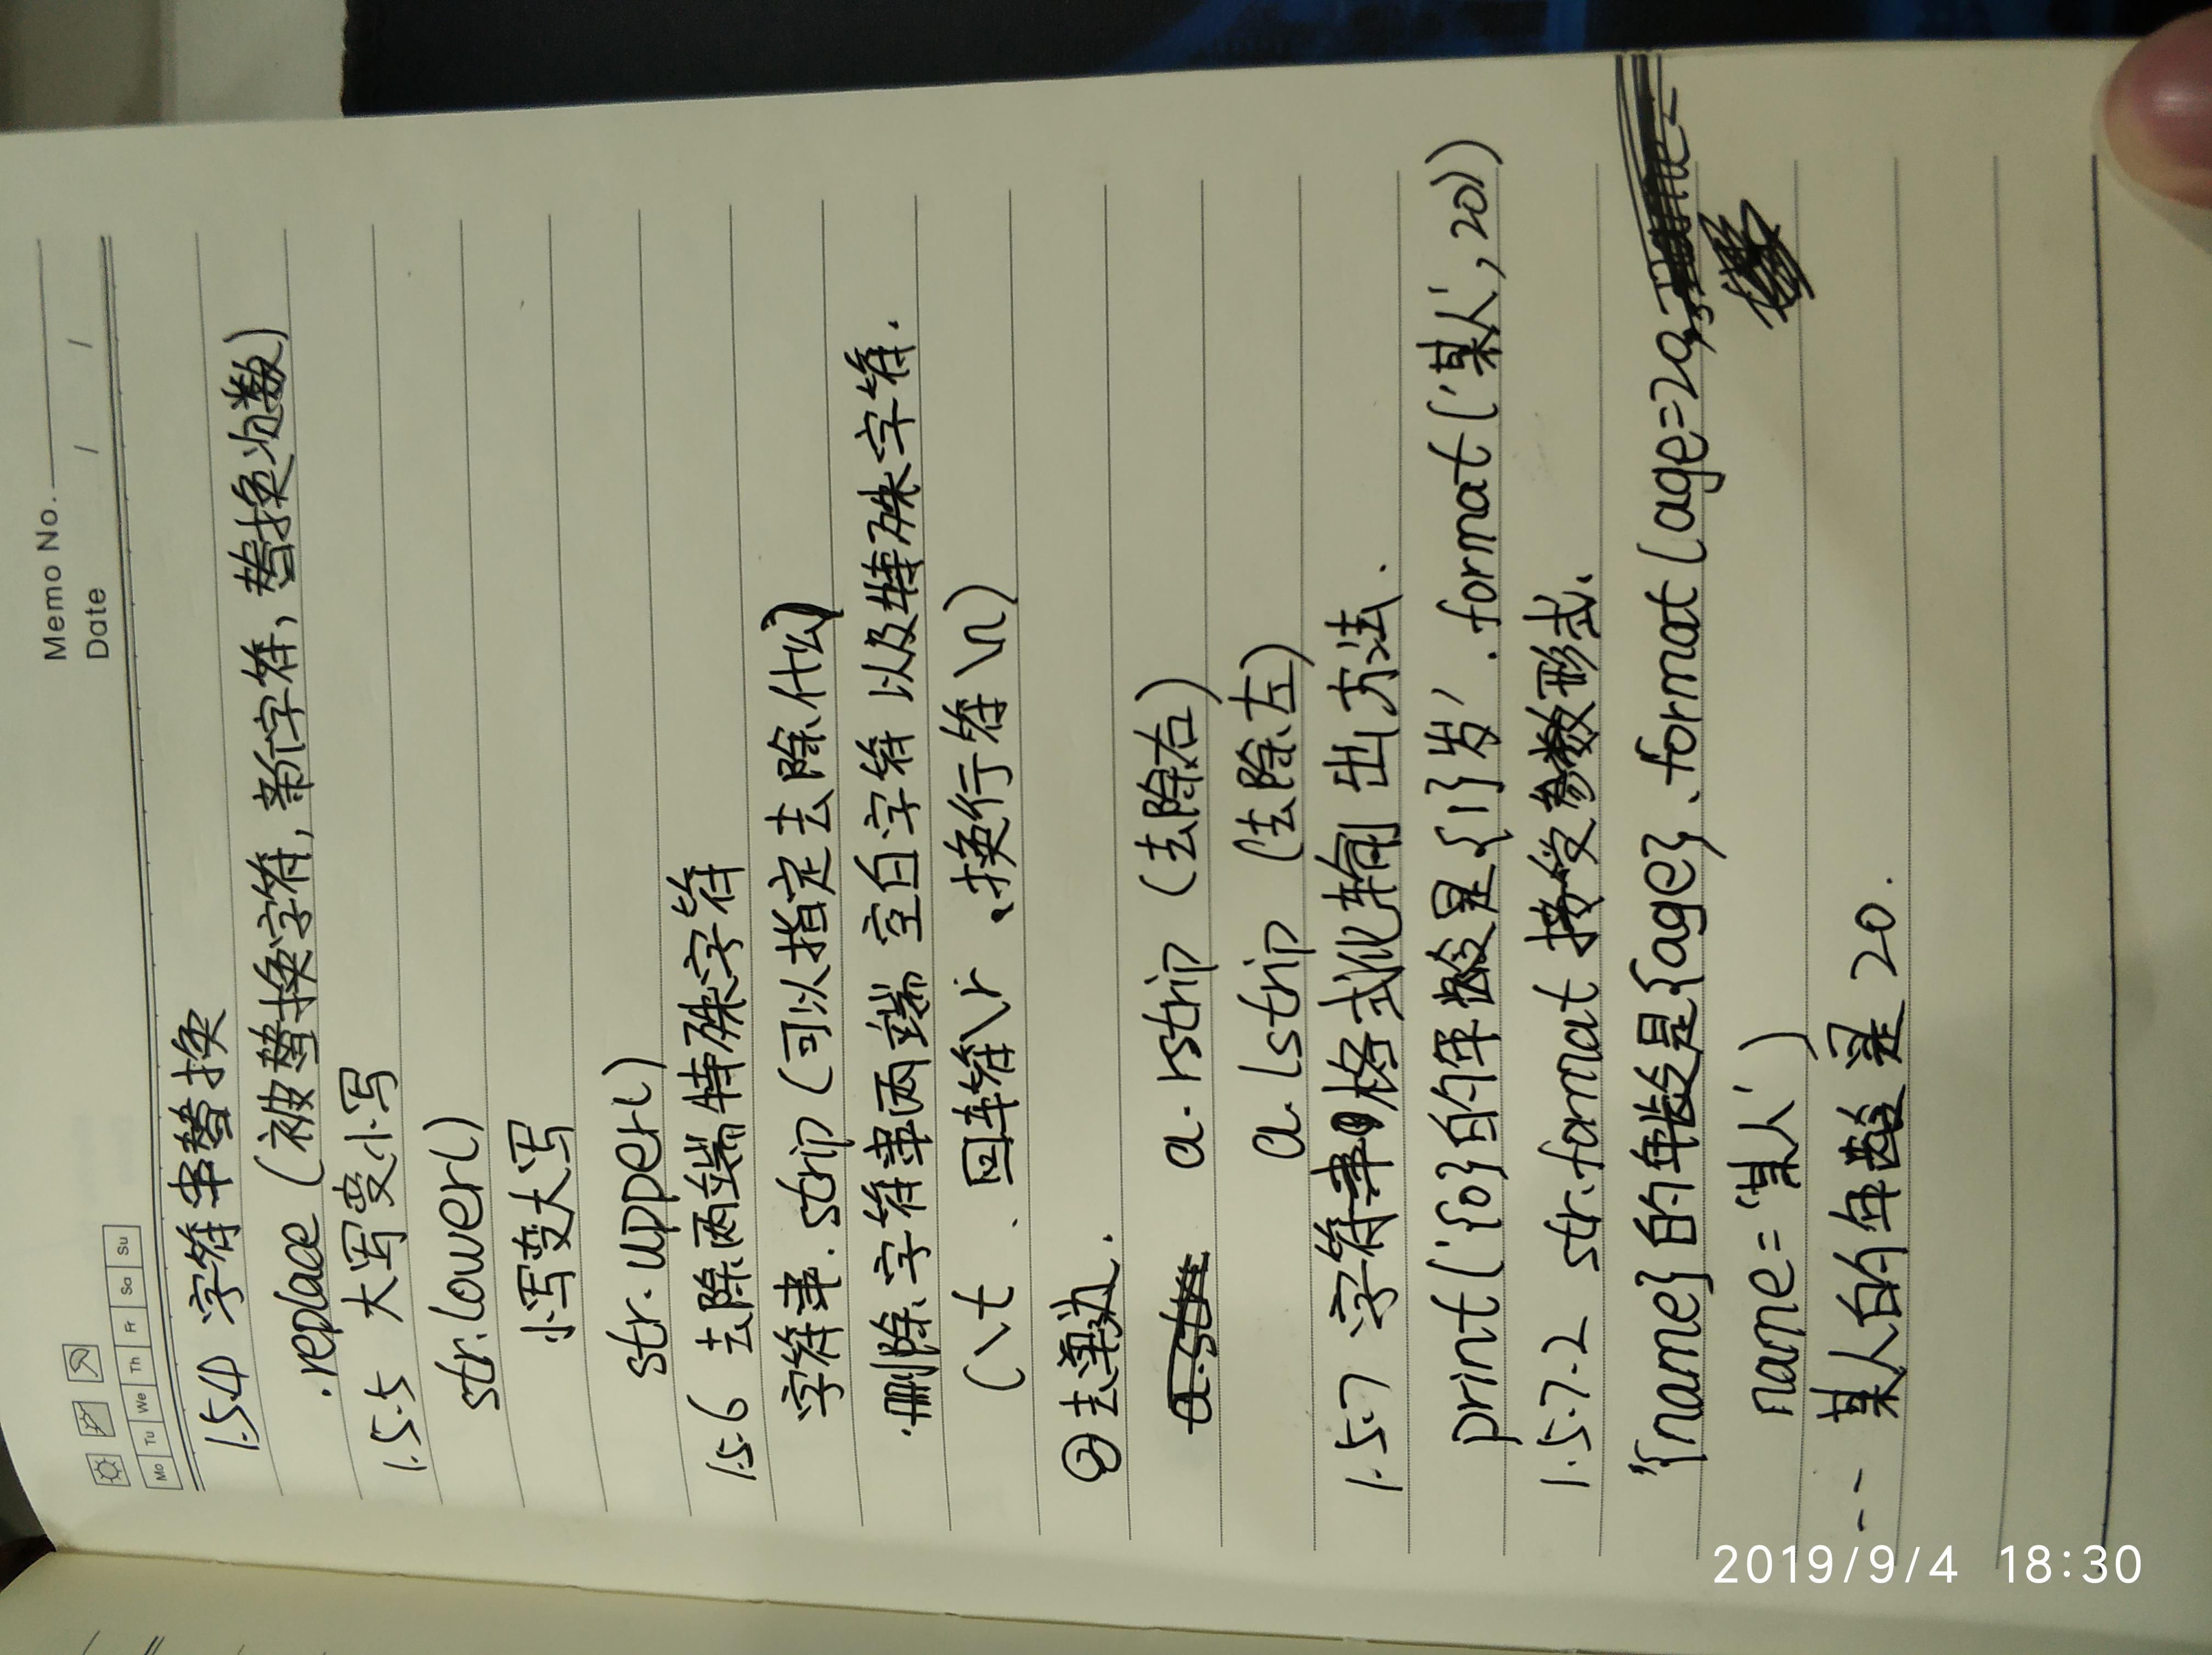 Memo No.
Date / /
Mo Tu We Th Fr Sa Su
1.5.4 字符串替换
.replace (被替换字符, 新字符, 替换次数)
1.5.5 大写变小写
str.lower()
小写变大写
str.upper()
1.5.6 去除两端特殊字符
字符串.strip (可以指定去除什么)
删除字符串两端 空白字符 以及特殊字符.
(\t 、回车符\r 、换行符 \n)
② 去单边.
a.rstrip (去除右)
a.lstrip (去除左)
1.5.7 字符串格式化输出方法.
print('{0}的年龄是{1}岁'.format('某人', 20))
1.5.7.2 str.format 接受参数形式.
'{name}的年龄是{age}.format(age=20,
name='某人')
-- 某人的年龄是 20.
2019/9/4 18:30